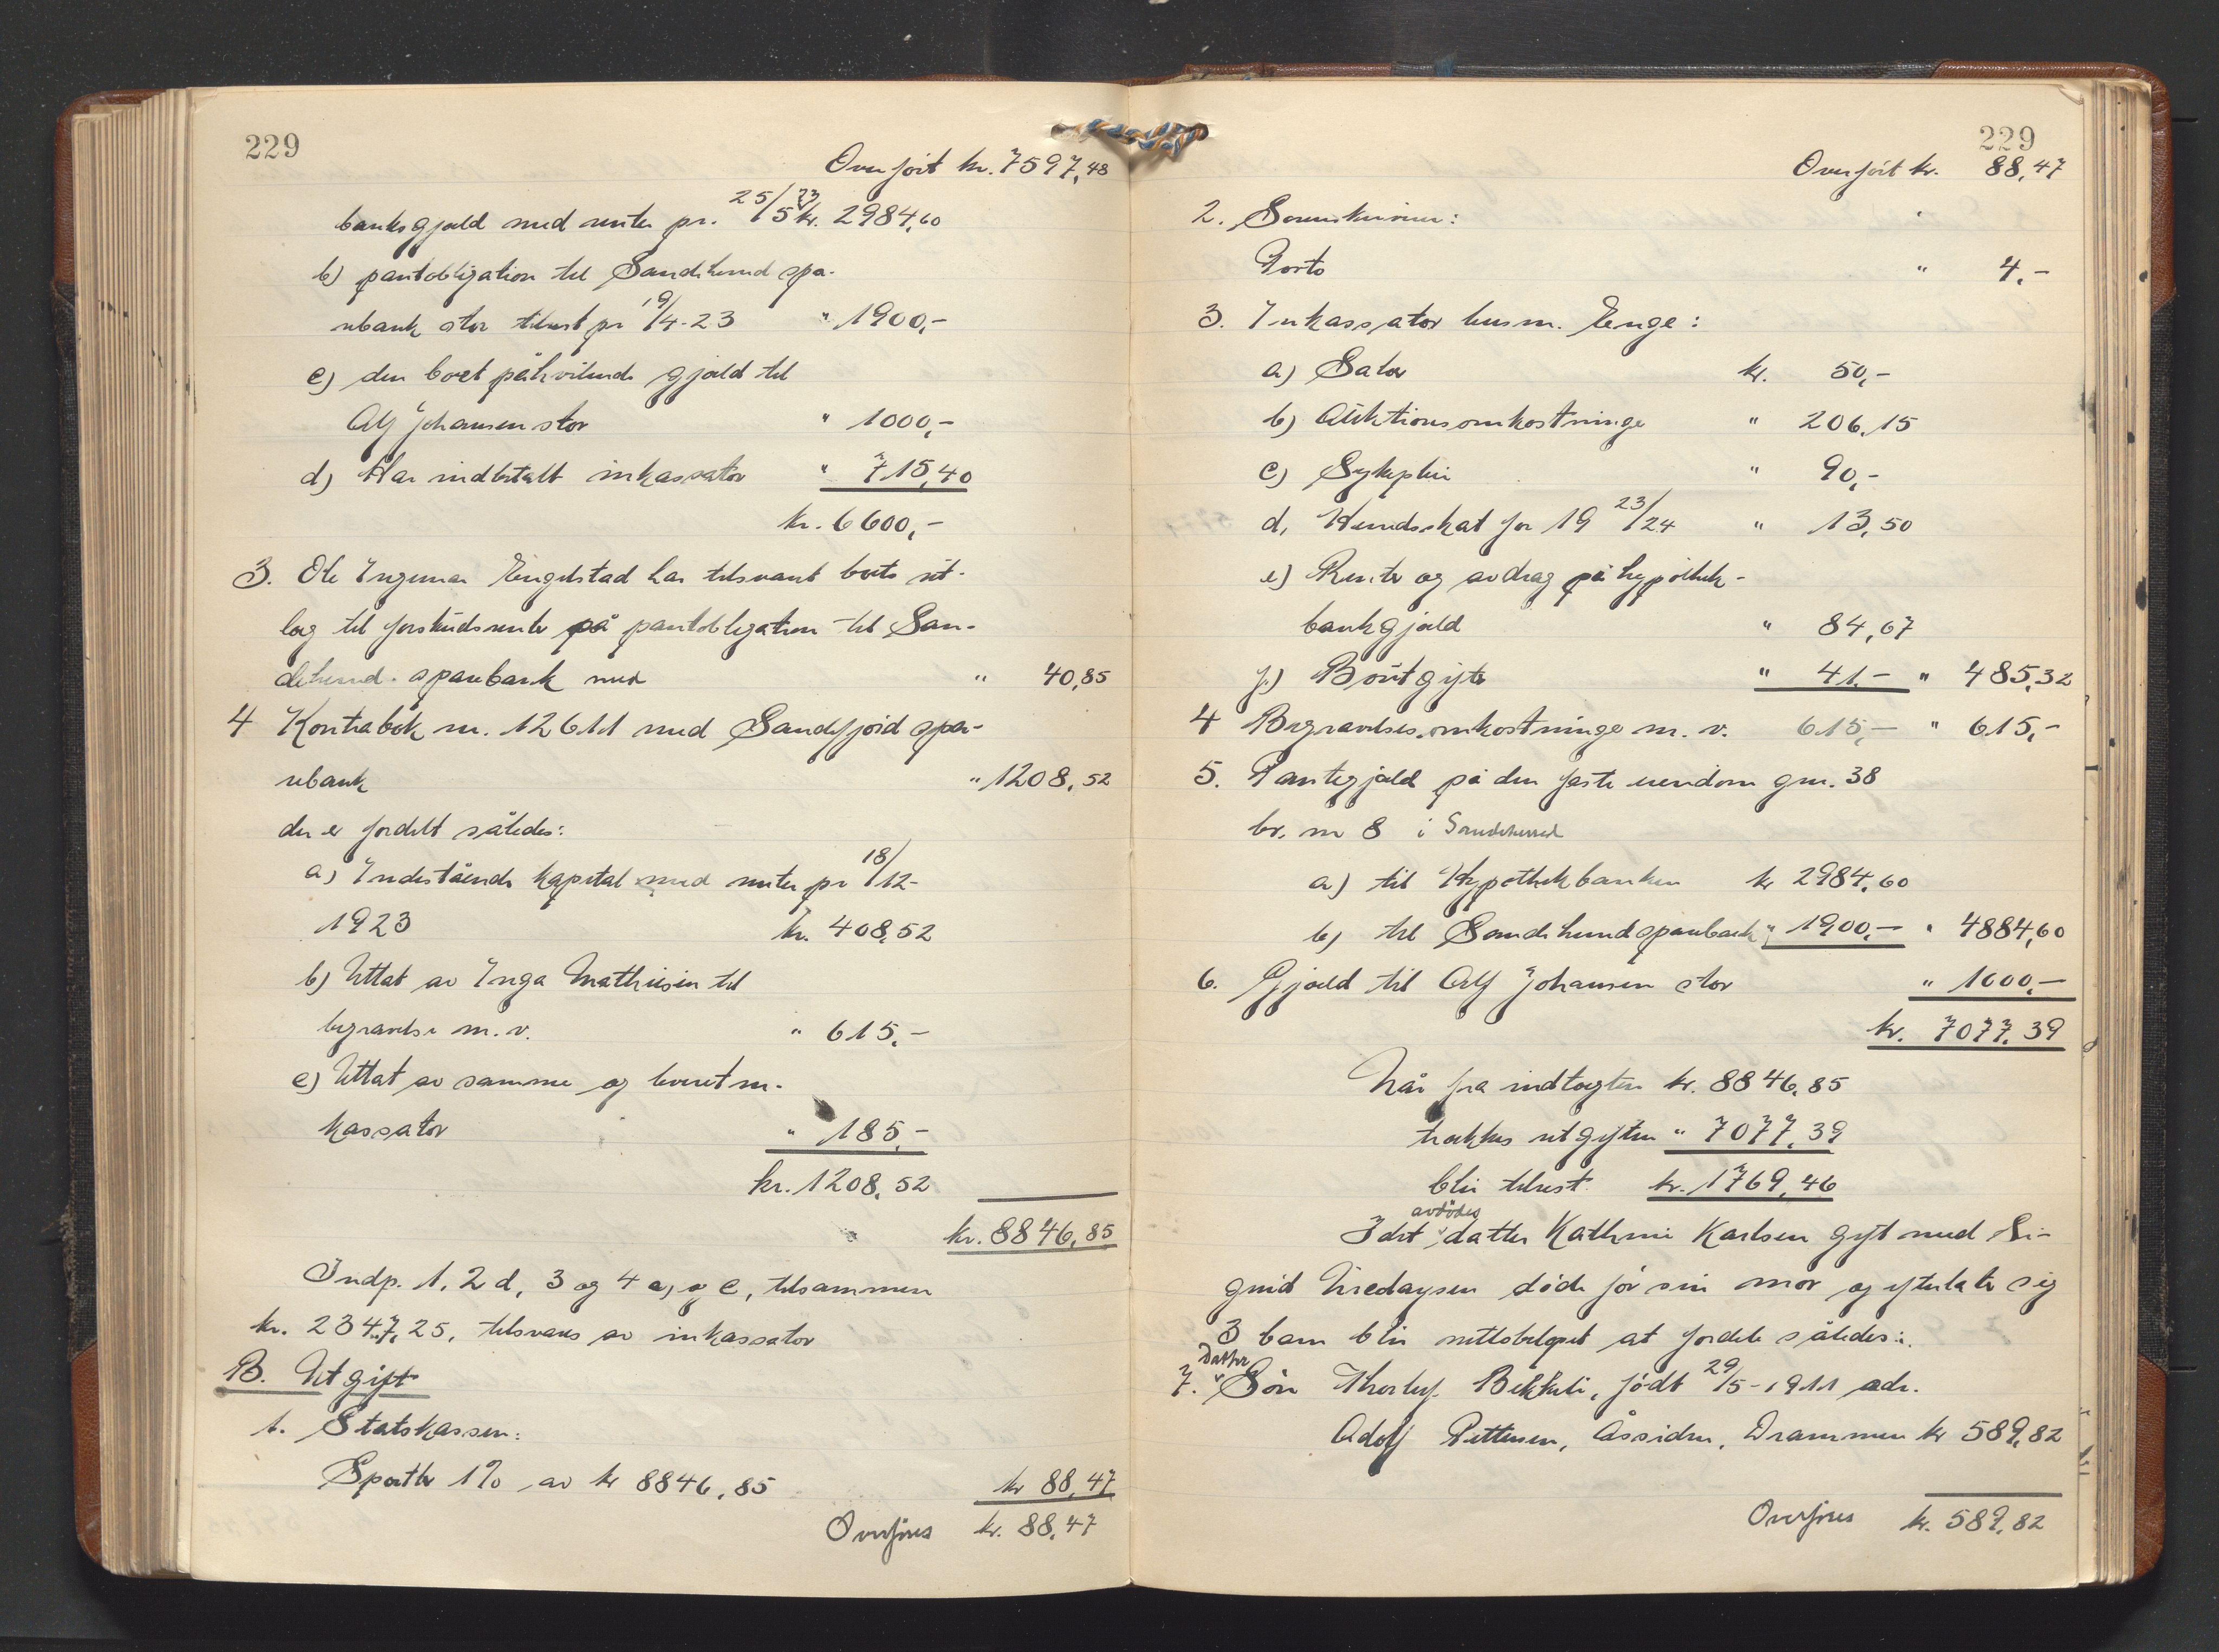 229
Overført kr. 7597,48
banksgjæld med renter pr. 25/5 23 kr. 2984,60
b) pantobligation til Sandeherred spa-
rebank stor tilrest pr 19/4-23 " 1900,-
c) den boet påhvilende gjæld til
Alf Johansen stor " 1000,-
d) Har indbetalt inkassator " 715,40
kr. 6600,-
3. Ole Ingemar Engelstad har tilsvaret boets ut-
læg til forskudsrente på pantobligation til San-
deherred sparebank med " 40,85
4 Kontrabok nr. 12611 med Sandefjord spa-
rebank " 1208,52
der er fordelt således:
a) Indestående kapital med renter pr 18/12-
1923 kr. 408,52
b) Uttat av Inga Mathiesen til
begravelse m.v. " 615,-
c) Uttat av samme og levert in-
kassator " 185,-
kr. 1208,52
kr. 8846,85
Indp. 1, 2 d, 3 og 4 a, og c, tilsammen
kr. 2347,25, tilsvares av inkassator
B. Utgift
1. Statskassen:
Sportler 1% av kr 8846,85 kr 88,47
Overføres kr. 88,47
229
Overført kr. 88,47
2. Sorenskriveren:
Porto " 4,-
3. Inkassator lensm. Enge:
a) Salær kr. 50,-
b) Auktionsomkostninger " 206,15
c) Sykepleie " 90,-
d, Herredsskat for 19 23/24 " 13,50
e) Renter og avdrag på hypothek-
bankgjæld " 84,67
f.) Boutgifter " 41.- " 485,32
4 Begravelsesomkostninger m.v. 615,- " 615,-
5. Pantegjæld på den faste eiendom gnr. 38
br. nr 8 i Sandeherred
a) til Hypothekbanken kr 2984,60
b) til Sandeherred sparebank " 1900,- " 4884,60
6. Gjæld til Alf Johansen stor " 1000,-
kr. 7077,39
Når fra indtægten kr. 8846,85
trækkes utgiften " 7077,39
blir tilrest kr. 1769,46
avdødes
Idet datter Kathrine Karlsen gift med Si-
gurd døde før sin mor og efterlater sig
3 barn blir nettobeløpet at fordele således:
Datter
7. Søn Thorleif Bekkeli, født 29/5-1911 adr.
Adolf Pettersen, Åssiden, Drammen kr 589,82
Overføres kr. 589,82